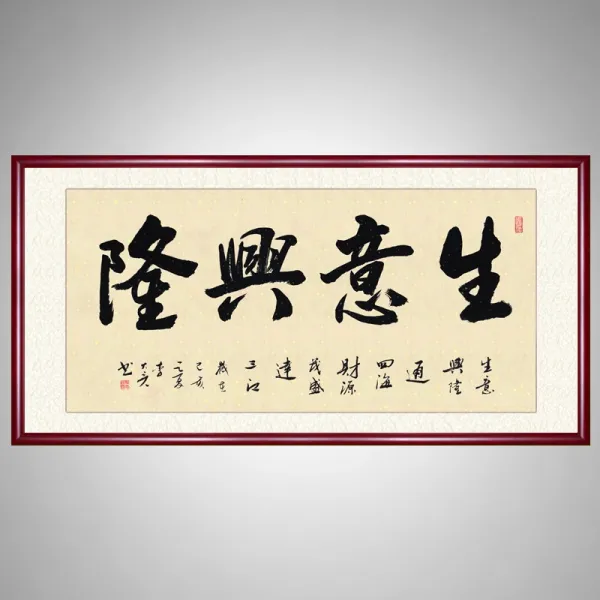 生意興隆
生意
興隆
通
四海
財源
茂盛
達
三江
歲在
己亥
之夏
李
書